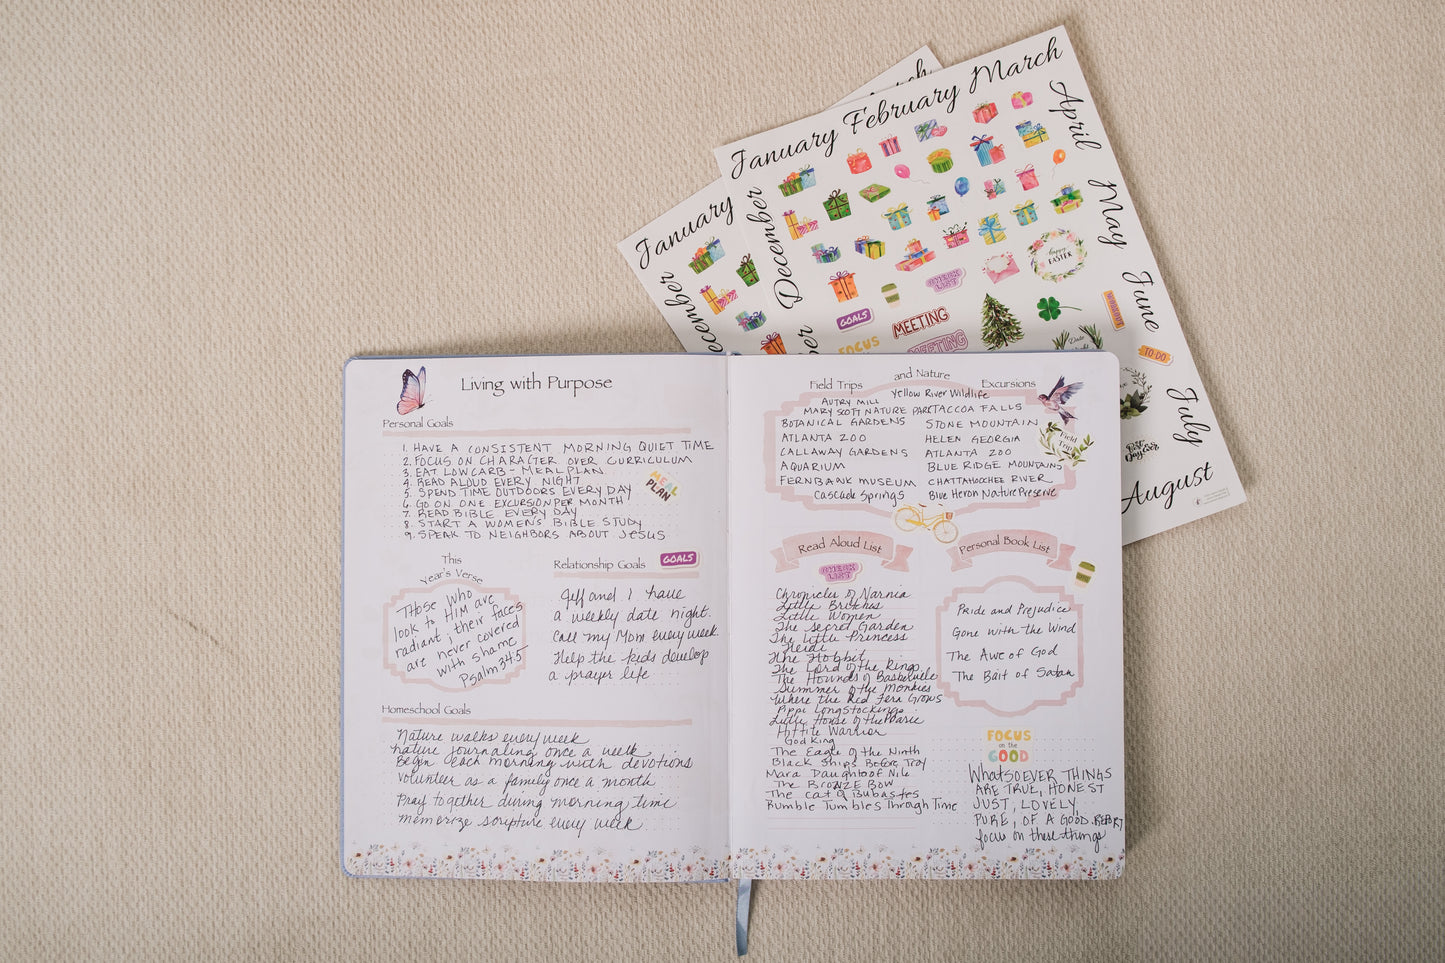 January February March
April
May
June
July
August
December
January
December
GOALS
CHECK
LIST
MEETING
MEETING
FOCUS
Happy
EASTER
TO DO
Best
Day Ever
Living with Purpose
Personal Goals
1. HAVE A CONSISTENT MORNING QUIET TIME
2. FOCUS ON CHARACTER OVER CURRICULUM
3. EAT LOW CARB - MEAL PLAN
4. READ ALOUD EVERY NIGHT
5. SPEND TIME OUTDOORS EVERY DAY
6. GO ON ONE EXCURSION PER MONTH
7. READ BIBLE EVERY DAY
8. START A WOMEN'S BIBLE STUDY
9. SPEAK TO NEIGHBORS ABOUT JESUS
MEAL
PLAN
This
Year's Verse
THOSE WHO
look to HIM are
radiant; their faces
are never covered
with shame
Psalm 34:5
Relationship Goals
GOALS
Jeff and I have
a weekly date night.
Call my Mom every week.
Help the kids develop
a prayer life
Homeschool Goals
Nature walks every week
nature journaling once a week
Begin each morning with devotions
Volunteer as a family once a month
Pray together during morning time
memorize scripture every week
Field Trips and Nature Excursions
AUTRY MILL Yellow River Wildlife
MARY SCOTT NATURE PARK TACCOA FALLS
BOTANICAL GARDENS STONE MOUNTAIN
ATLANTA ZOO HELEN GEORGIA
CALLAWAY GARDENS ATLANTA ZOO
AQUARIUM BLUE RIDGE MOUNTAINS
FERNBANK MUSEUM CHATTAHOOCHEE RIVER
Cascade Springs Blue Heron Nature Preserve
Field
Trip
Read Aloud List
CHECK
LIST
Chronicles of Narnia
Little Britches
Little Women
The Secret Garden
The Little Princess
Heidi
The Hobbit
The Lord of the Rings
The Hounds of Baskerville
Summer of the Monkies
Where the Red Fern Grows
Pippi Longstockings
Little House of the Prairie
Hittite Warrior
God King
The Eagle of the Ninth
Black Ships Before Troy
Mara Daughter of Nile
The BRONZE BOW
The Cat of Bubastes
Rumble Tumbles Through Time
Personal Book List
Pride and Prejudice
Gone with the Wind
The Awe of God
The Bait of Satan
FOCUS
on the
GOOD
WHATSOEVER THINGS
ARE TRUE, HONEST
JUST, LOVELY,
PURE, OF A GOOD REPORT
focus on these things